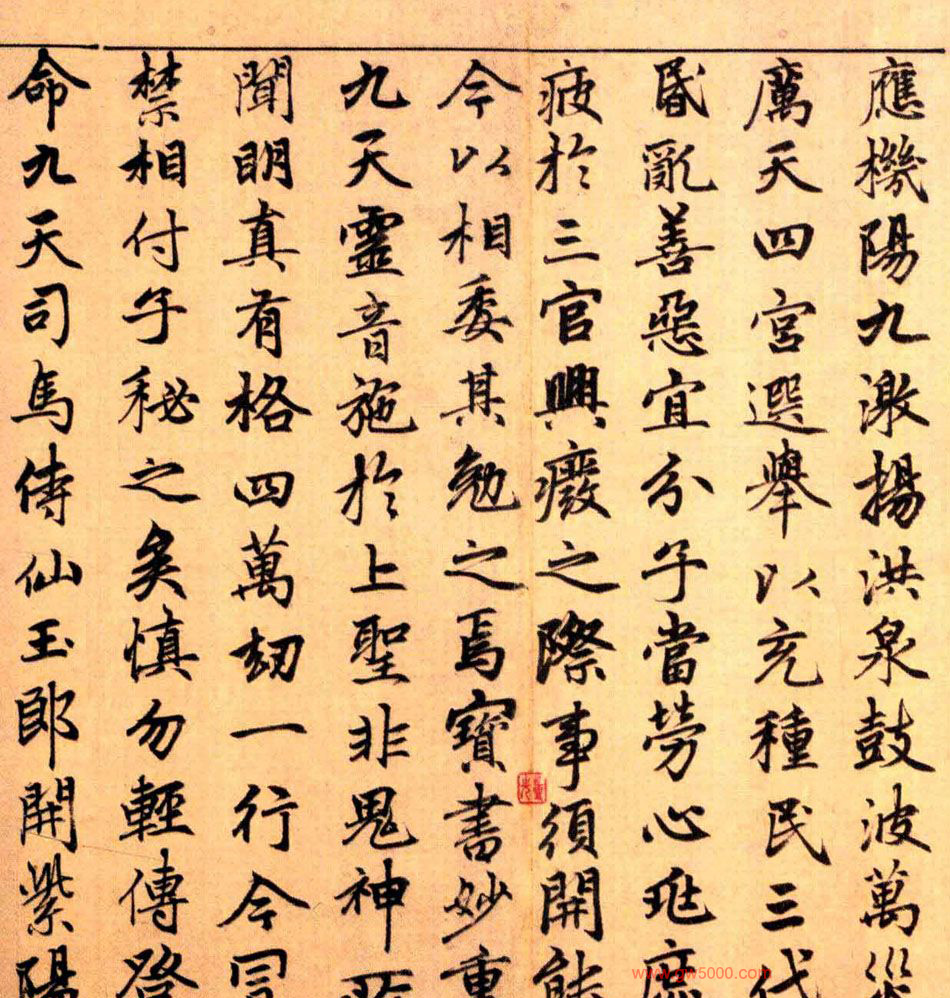 應機陽九激揚洪泉鼓波萬災
厲天四宮選舉以充種民三代
昏亂善惡宜分子當勞心班庶
疲於三官興廢之際事須開能
今以相委其勉之焉寶書妙重
九天靈音施於上聖非鬼神所
聞明真有格四萬劫一行今冒
禁相付子秘之矣慎勿輕傳啓
命九天司馬侍仙玉郎開紫陽
www.gw5000.com